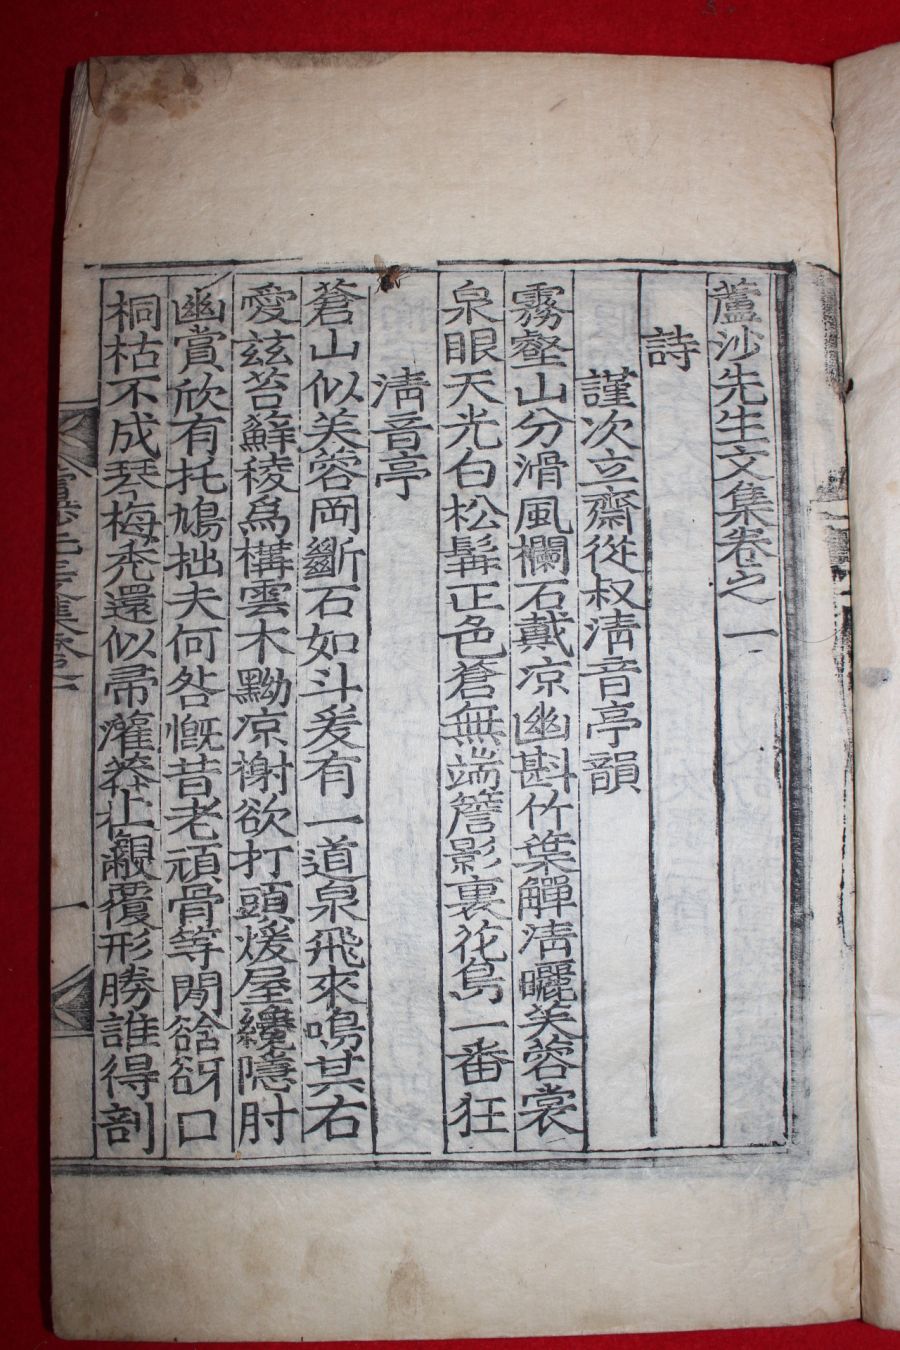 蘆沙先生文集卷之一
詩
謹次立齋從叔淸音亭韻
霧壑山分滑風欄石戴凉幽斟竹葉觶淸曬芙蓉裳
泉眼天光白松髯正色蒼無端簷影裏花鳥一番狂
淸音亭
蒼山似芙蓉岡斷石如斗爰有一道泉飛來鳴其右
愛玆苔蘚稜爲構雲木黝凉榭欲打頭煖屋纔隱肘
幽賞欣有托鳩拙夫何咎慨昔老頑骨等閒谽谺口
桐枯不成琴梅禿還似帚灌莽覆形勝誰得剖
一